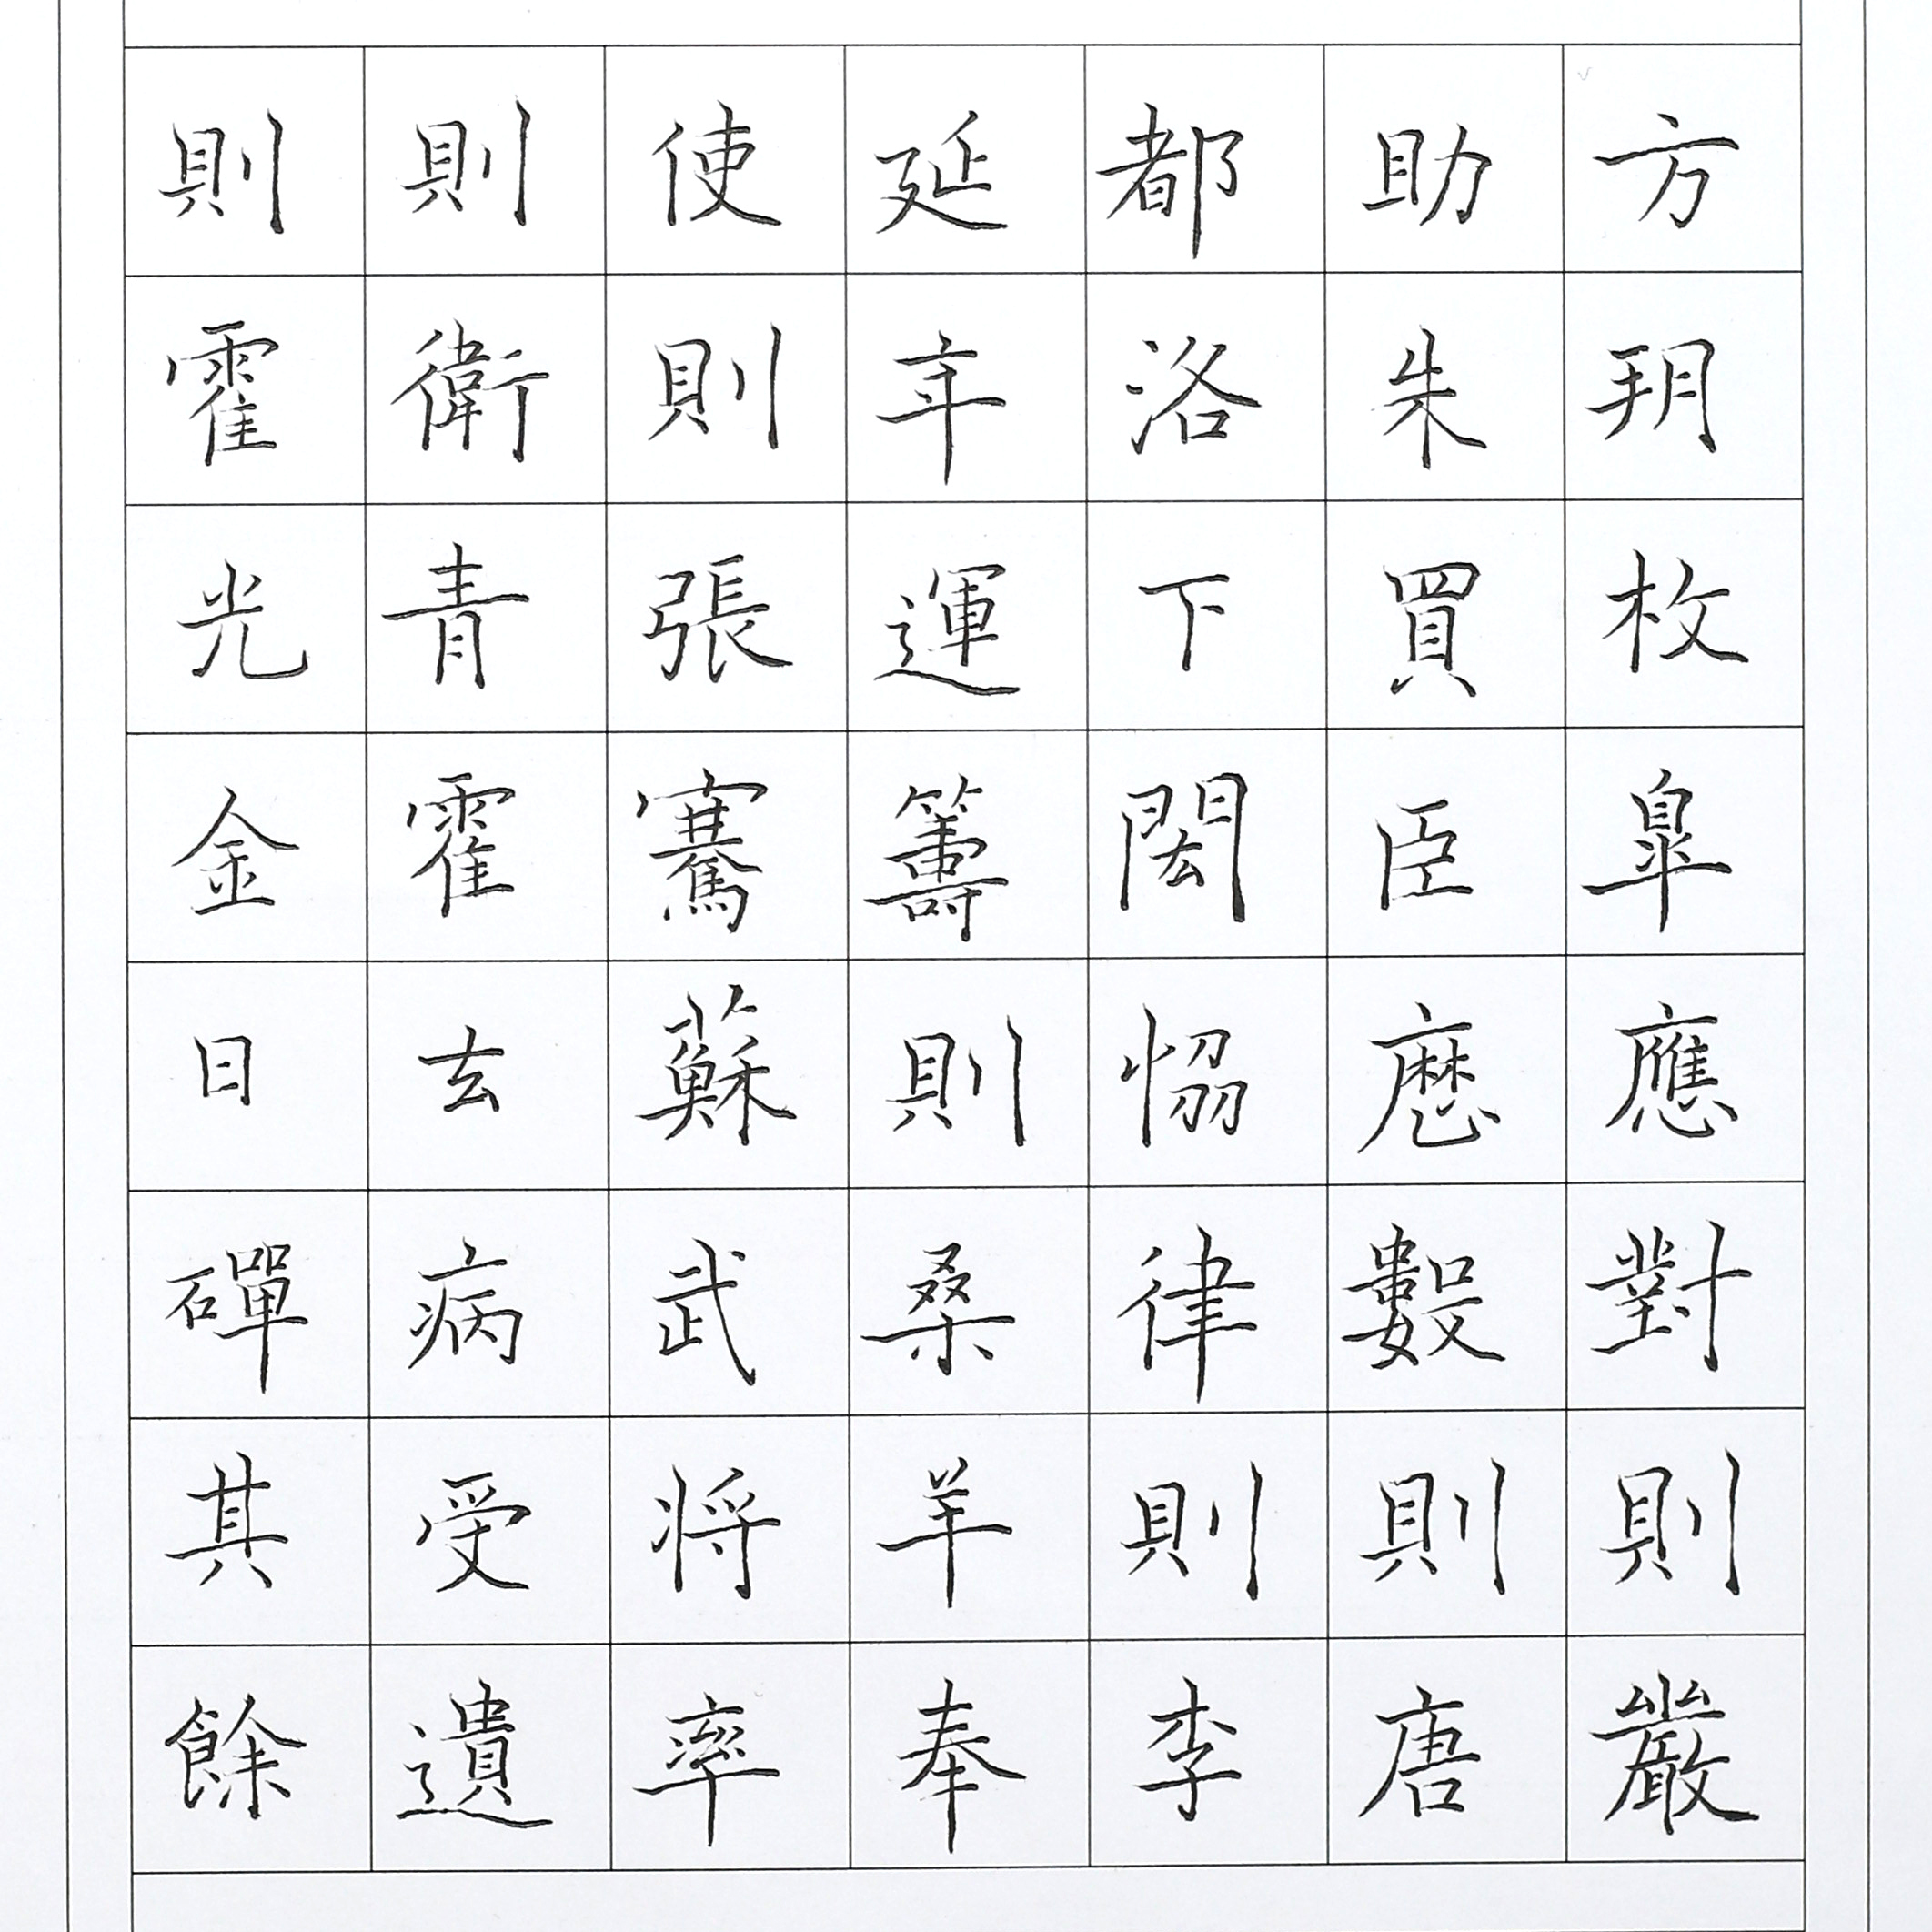 方朔枚皐應對則嚴
助朱買臣曆數則唐
都洛下閎恊律則李
延年運籌則桑羊奉
使則張騫蘇武将率
則衛青霍去病受遺
則霍光金日磾其餘